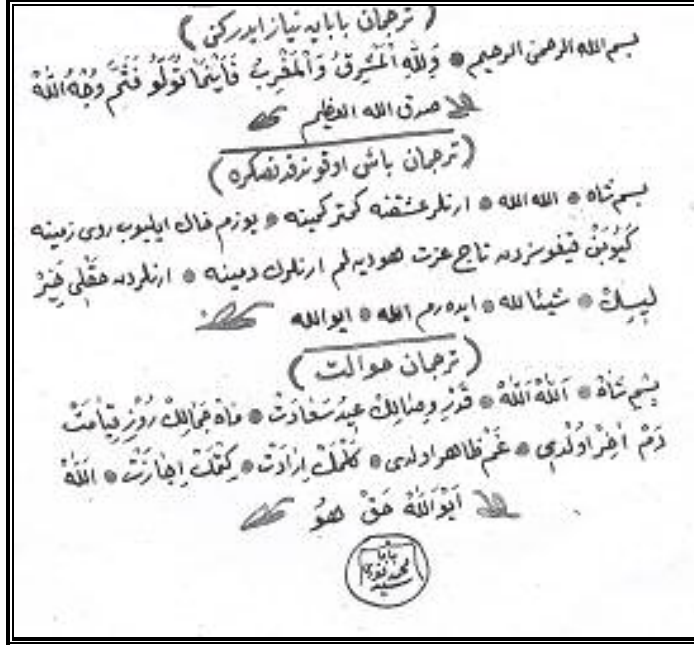 ( ترجمان بابایه نیاز ایدرکن )
بسم الله الرحمن الرحیم * وَلِلّٰهِ اَلْمَشْرِقُ وَالْمَغْرِبُ فَاَیْنَمَا تُوَلُّو فَثَمَّ وَجْهُ اللهْ
صدق الله العظیم
( ترجمان باشی اوقوندقدنصکره )
بسم شاه * الله الله * ارنلر عشقنه کمتر کمینه * یوزم خاك ایلیوب روی زمینه
تاج عزت هو دیه لم ارنلرك دمینه * ارنلردن حقلی خیر
شیئا لله * ایده رم الله * ایوالله
( ترجمان حوالت )
بسم شاه * الله الله * قدر وصالك عید سعادت * ماه جمالك روز قیامت
دم اخر اولدی * غم ظاهر اولدی * کلمك ارادت * کتمك اجازت * الله
ایوالله حق هو
بابا
محمد
سید